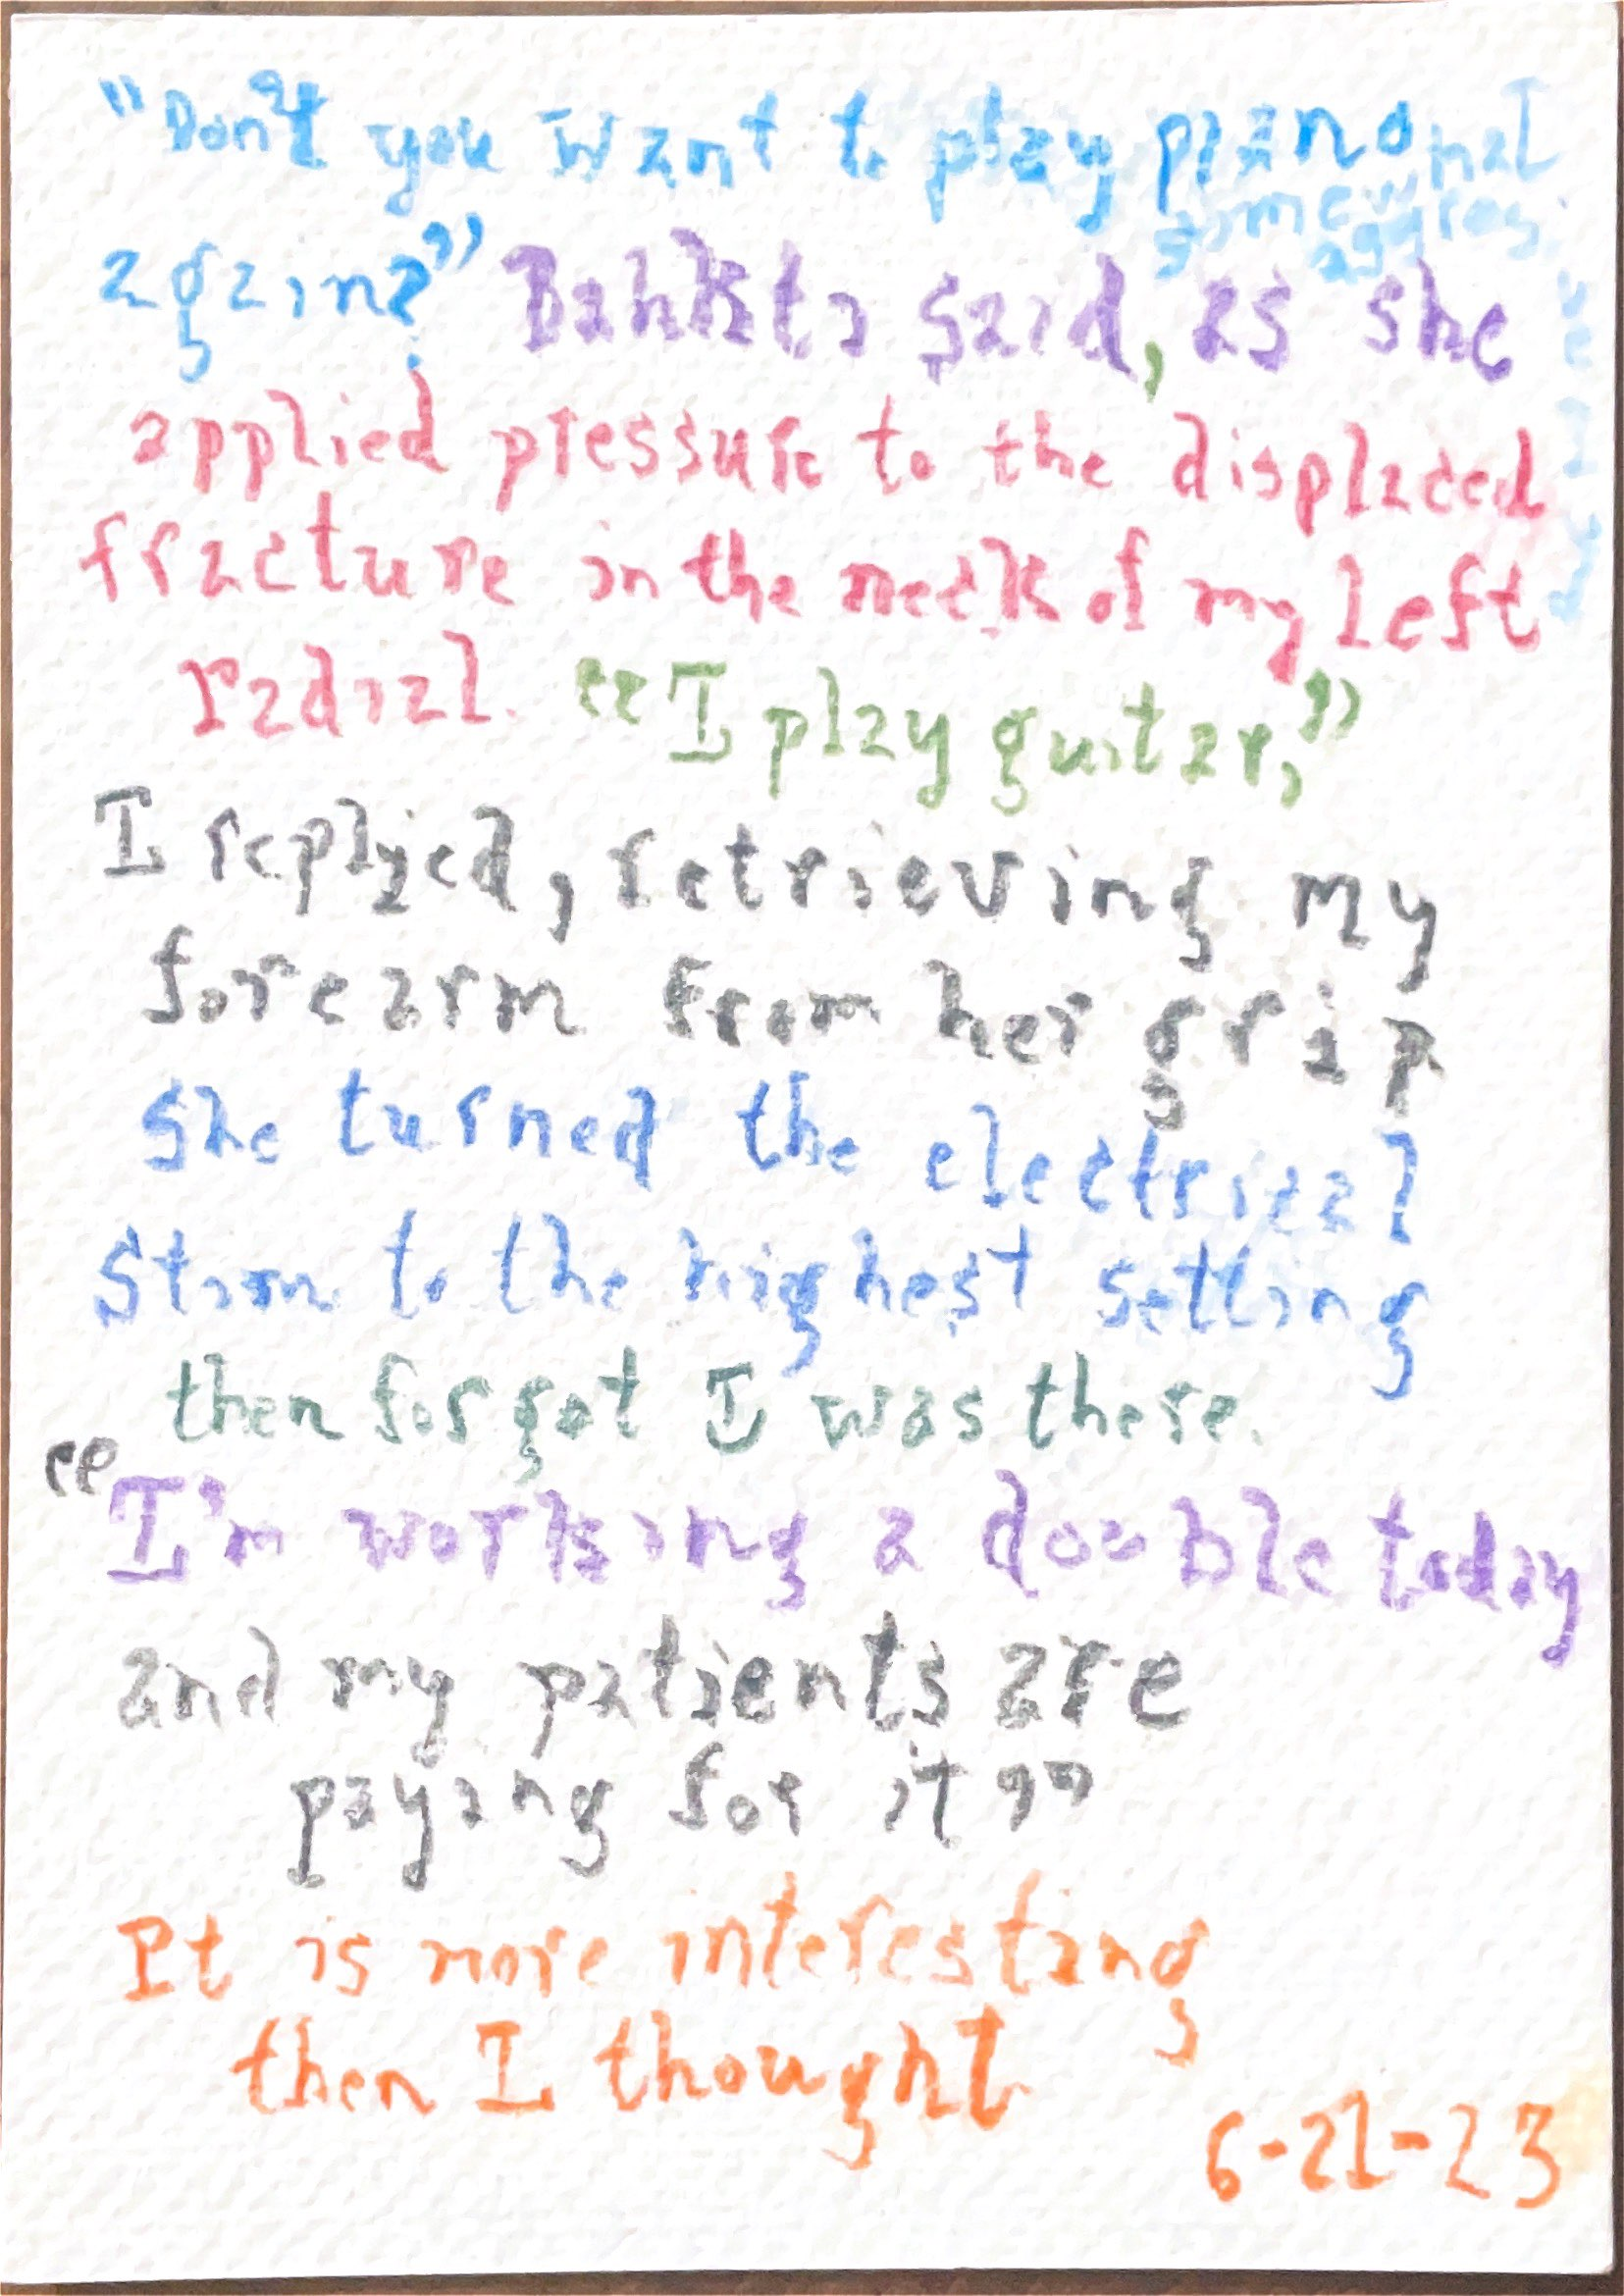 "Don't you want to play piano
again?" Bahkti said, as she
applied pressure to the displaced
fracture in the neck of my left
radial. "I play guitar,"
I replyed, retrieving my
forearm from her grip
She turned the electrical
Stim to the highest setting
then forgot I was there.
"I'm working a double today
and my patients are
paying for it"
It is more interesting
then I thought
6-21-23